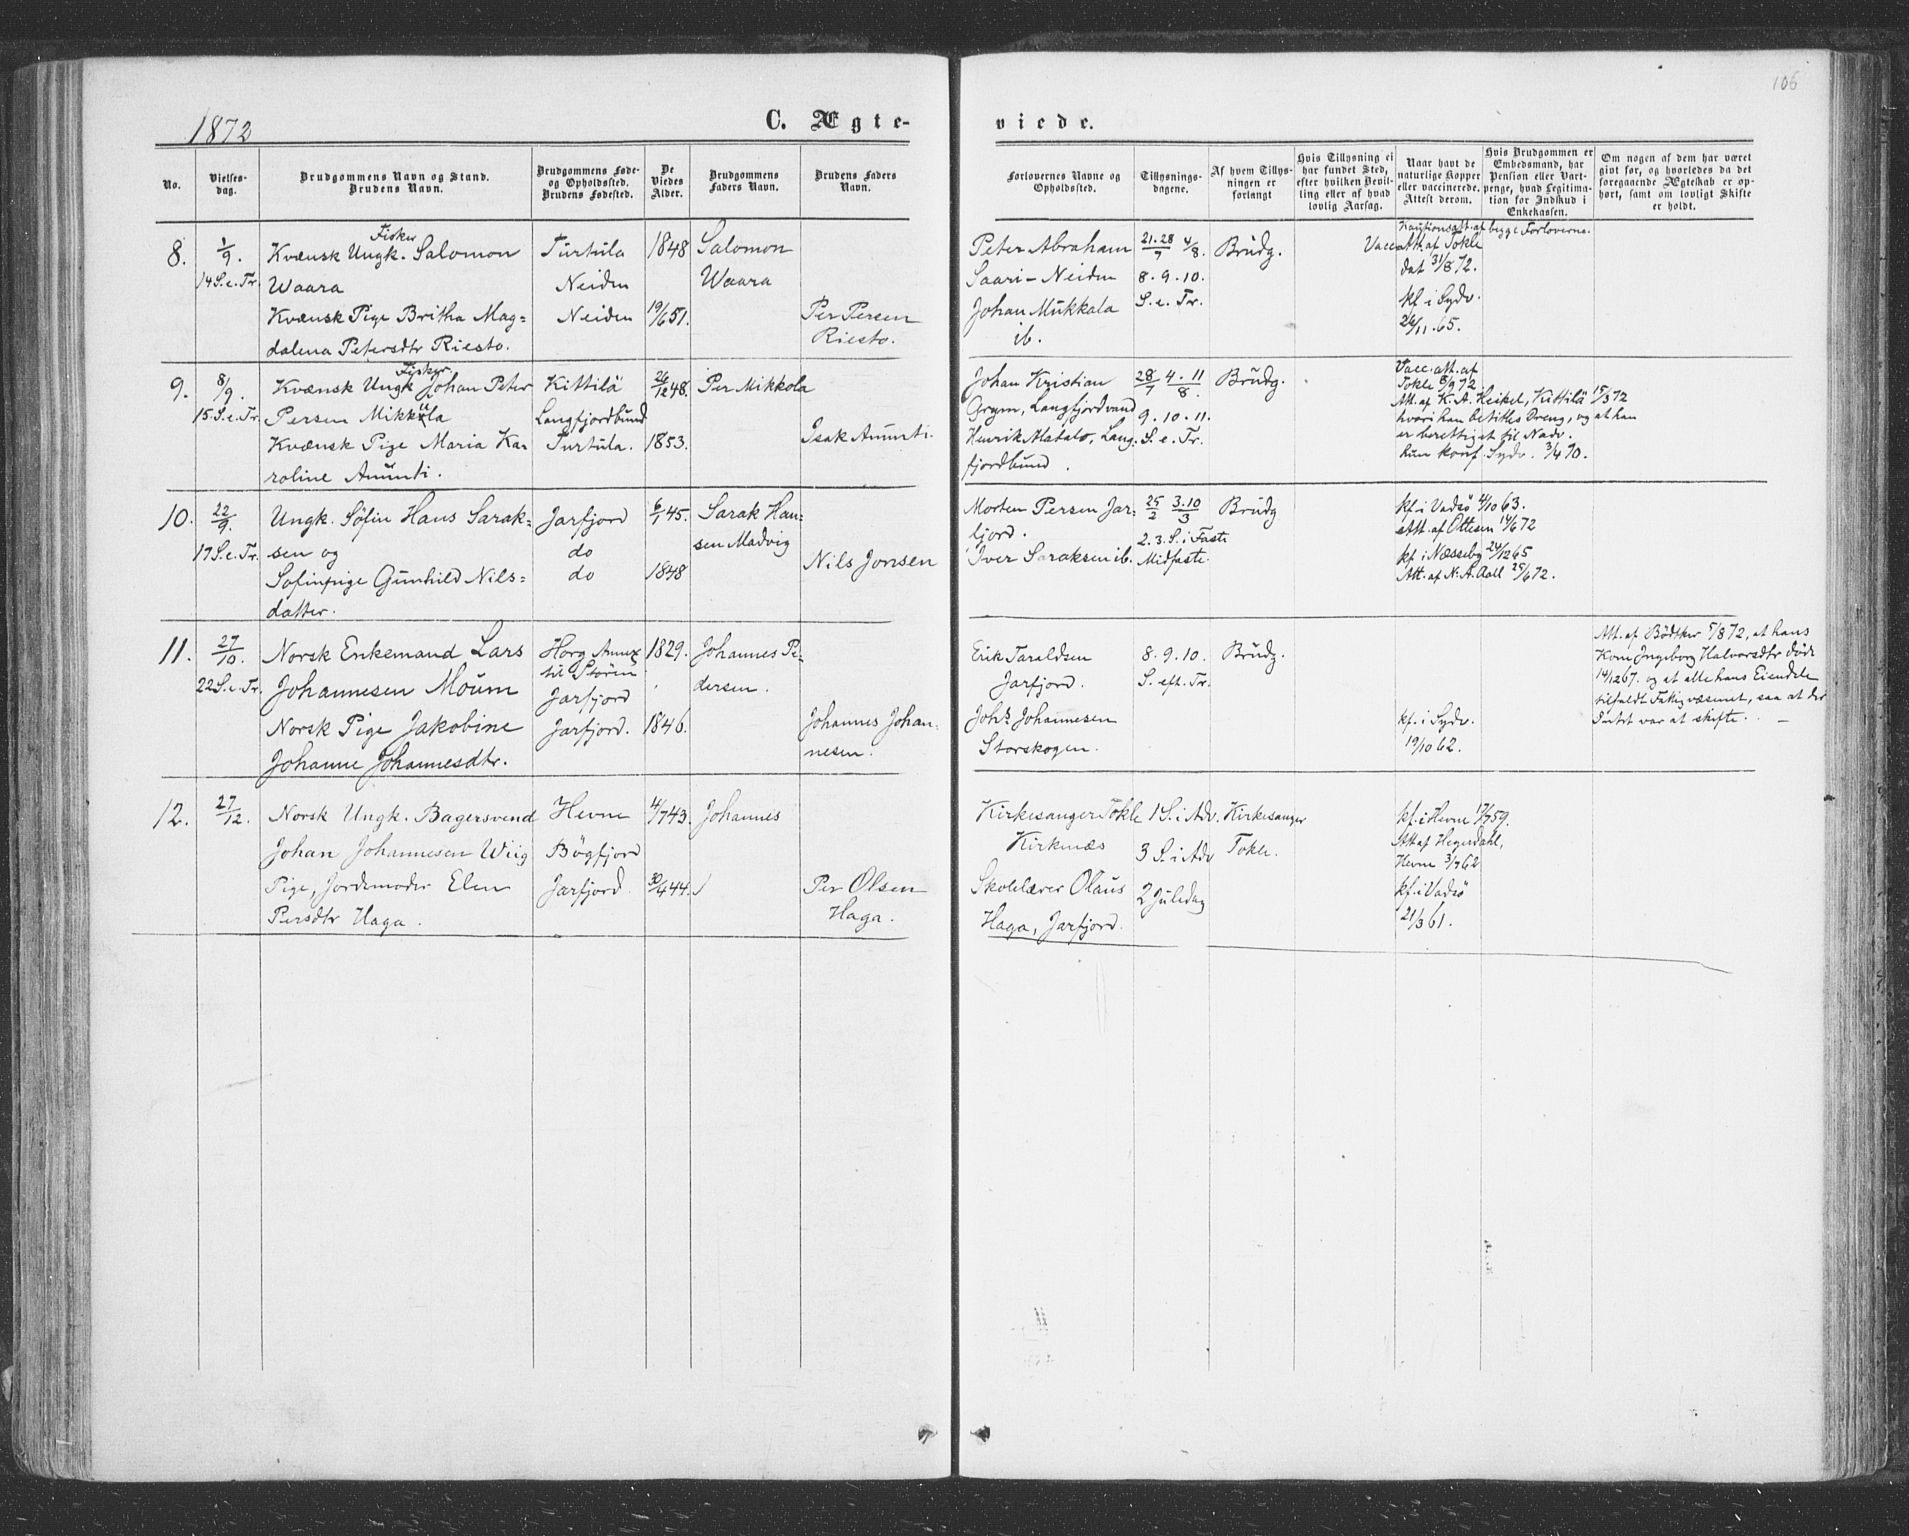 106
1872
C. Ægte-
viede.
No.
Vielses-
dag.
Brudgommens Navn og Stand.
Brudens Navn.
Brudgommens Føde-
og Opholdssted.
Brudens Fødested.
De
Viedes
Alder.
Brudgommens
Faders Navn.
Brudens Faders
Navn.
Forlovernes Navne og
Opholdssted.
Tillysnings-
dagene.
Af hvem Tillys-
ningen er
forlangt
Hvis Tillysning ei
har fundet Sted,
efter hvilken Bevil-
ling eller af hvad
lovlig Aarsag.
Naar havt de
naturlige Kopper
eller vaccinerede.
Attest derom.
Hvis Brudgommen er
Embedsmand, har
Pension eller Vart-
penge, hvad Legitima-
tion for Indskud i
Enkekassen.
Om nogen af dem har været
givt før, og hvorledes da det
foregaaende Ægteskab er op-
hørt, samt om lovligt Skifte
er holdt.
8.
1/9.
14 S. e. Tr.
Fisker
Kvænsk Ungk. Salomon
Waara
Kvænsk Pige Britha Mag=
dalena Petersdtr Riesto.
Turtula
Neiden
Neiden
1848
19/6 51.
Salomon
Waara
Per Persen
Riesto.
Peter Abraham
Saari - Neiden
Johan Mukkala
ib.
21. 28/7 4/8.
8. 9. 10.
S. e. Tr.
Brudg.
Kautionsatt. af begge Forloverne.
Vacc. Att. af Tokle
dat 31/8 72.
kf i Sydv.
26/11. 65.
9.
8/9.
15. S. e. Tr.
Fisker
Kvænsk Ungk Johan Peter
Persen Mikkula
Kvænsk Pige Maria Ka=
roline Anunti.
Kittilä
Langfjordbund
Turtula.
26/12 48.
1853.
Per Mikkola
Isak Anunti.
Johan Kristian
Grym, Langfjordvand
Henrik Matalo, Lang-
fjordbund.
28/7 4. 11/8.
9. 10. 11.
S. e. Tr.
Brudg.
Vacc. att. af
Tokle 8/9 72.
Att. af K. A. Heikel, Kittilä 15/3 72
hvori han betitles Dreng, og at han
er berettiget til Nadv.
hun konf. Sydv. 3/4 70.
10.
22/9.
17 S. e. Tr.
Ungk. Søfin Hans Sarak=
sen og
Søfinpige Gunhild Nils=
datter.
Jarfjord
do
do
6/1 45.
1848
Sarak Han=
sen Madvig
Nils Jonsen
Morten Persen Jar=
fjord.
Iver Saraksen ib.
25/2 3. 10/3
2. 3. S. i Faste
Midfaste.
Brudg
kf. i Vadsø 4/10 63.
Att. af Ottesen 14/6 72
kf. i Næsseby 24/12 65
Att. af N. A. Aall 25/6 72.
11.
27/10.
22 S. e. Tr.
Norsk Enkemand Lars
Johannesen Moum
Norsk Pige Jakobine
Johanne Johannesdtr.
Horg Annex
til Støren
Jarfjord
Jarfjord.
1829.
1846.
Johannes Pe=
dersen.
Johannes Johan-
nesen.
Erik Taraldsen
Jarfjord.
Johs. Johannesen
Storskogen.
8. 9. 10.
S. eft. Tr.
Brudg.
kf. i Sydv.
19/10 62.
Att. af Bødtker 5/8 72, at hans
Kone Ingeborg Halvorsdtr døde
14/12 67. og at alle hans Eiendele
tilfaldt Fattigvæsenet, saa at der
Intet var at skifte. . —
12.
27/12.
Norsk Ungk. Bagersvend
Johan Johannesen Wiig
Pige, Jordemoder Elen
Persdtr Haga.
Hevne
Bøgfjord
Jarfjord.
4/7 43.
30/4 44.
Johannes
Per Olsen
Haga.
Kirkesanger Tokle
Kirkenæs
Skolelærer Olaus
Haga, Jarfjord.
1 S. i Adv.
3 S. i Adv
2 Juledag
Kirkesanger
Tokle.
kf. i Hevne 17/7 59.
Att af Hegerdahl,
Hevne 3/7 62
kf. i Vadsø
21/3 61.